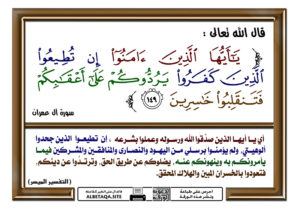 قال الله تعالى :
﴿ يَـٰٓأَيُّهَا ٱلَّذِينَ ءَامَنُوٓا۟ إِن تُطِيعُوا۟
ٱلَّذِينَ كَفَرُوا۟ يَرُدُّوكُمْ عَلَىٰٓ أَعْقَـٰبِكُمْ
فَتَنقَلِبُوا۟ خَـٰسِرِينَ ﴿١٤٩﴾
سورة آل عمران
أي يا أيها الذين صدَّقوا الله ورسوله وعملوا بشرعه ، إن تطيعوا الذين جحدوا
ألوهيتي, ولم يؤمنوا برسلي من اليهود والنصارى والمنافقين والمشركين فيما
يأمرونكم به وينهونكم عنه, يضلوكم عن طريق الحق, وترتدُّوا عن دينكم,
فتعودوا بالخسران المبين والهلاك المحقق.
( التفسير الميسر )
احرص على طباعة
ونشر هذه الورقة
ALBETAQA.SITE